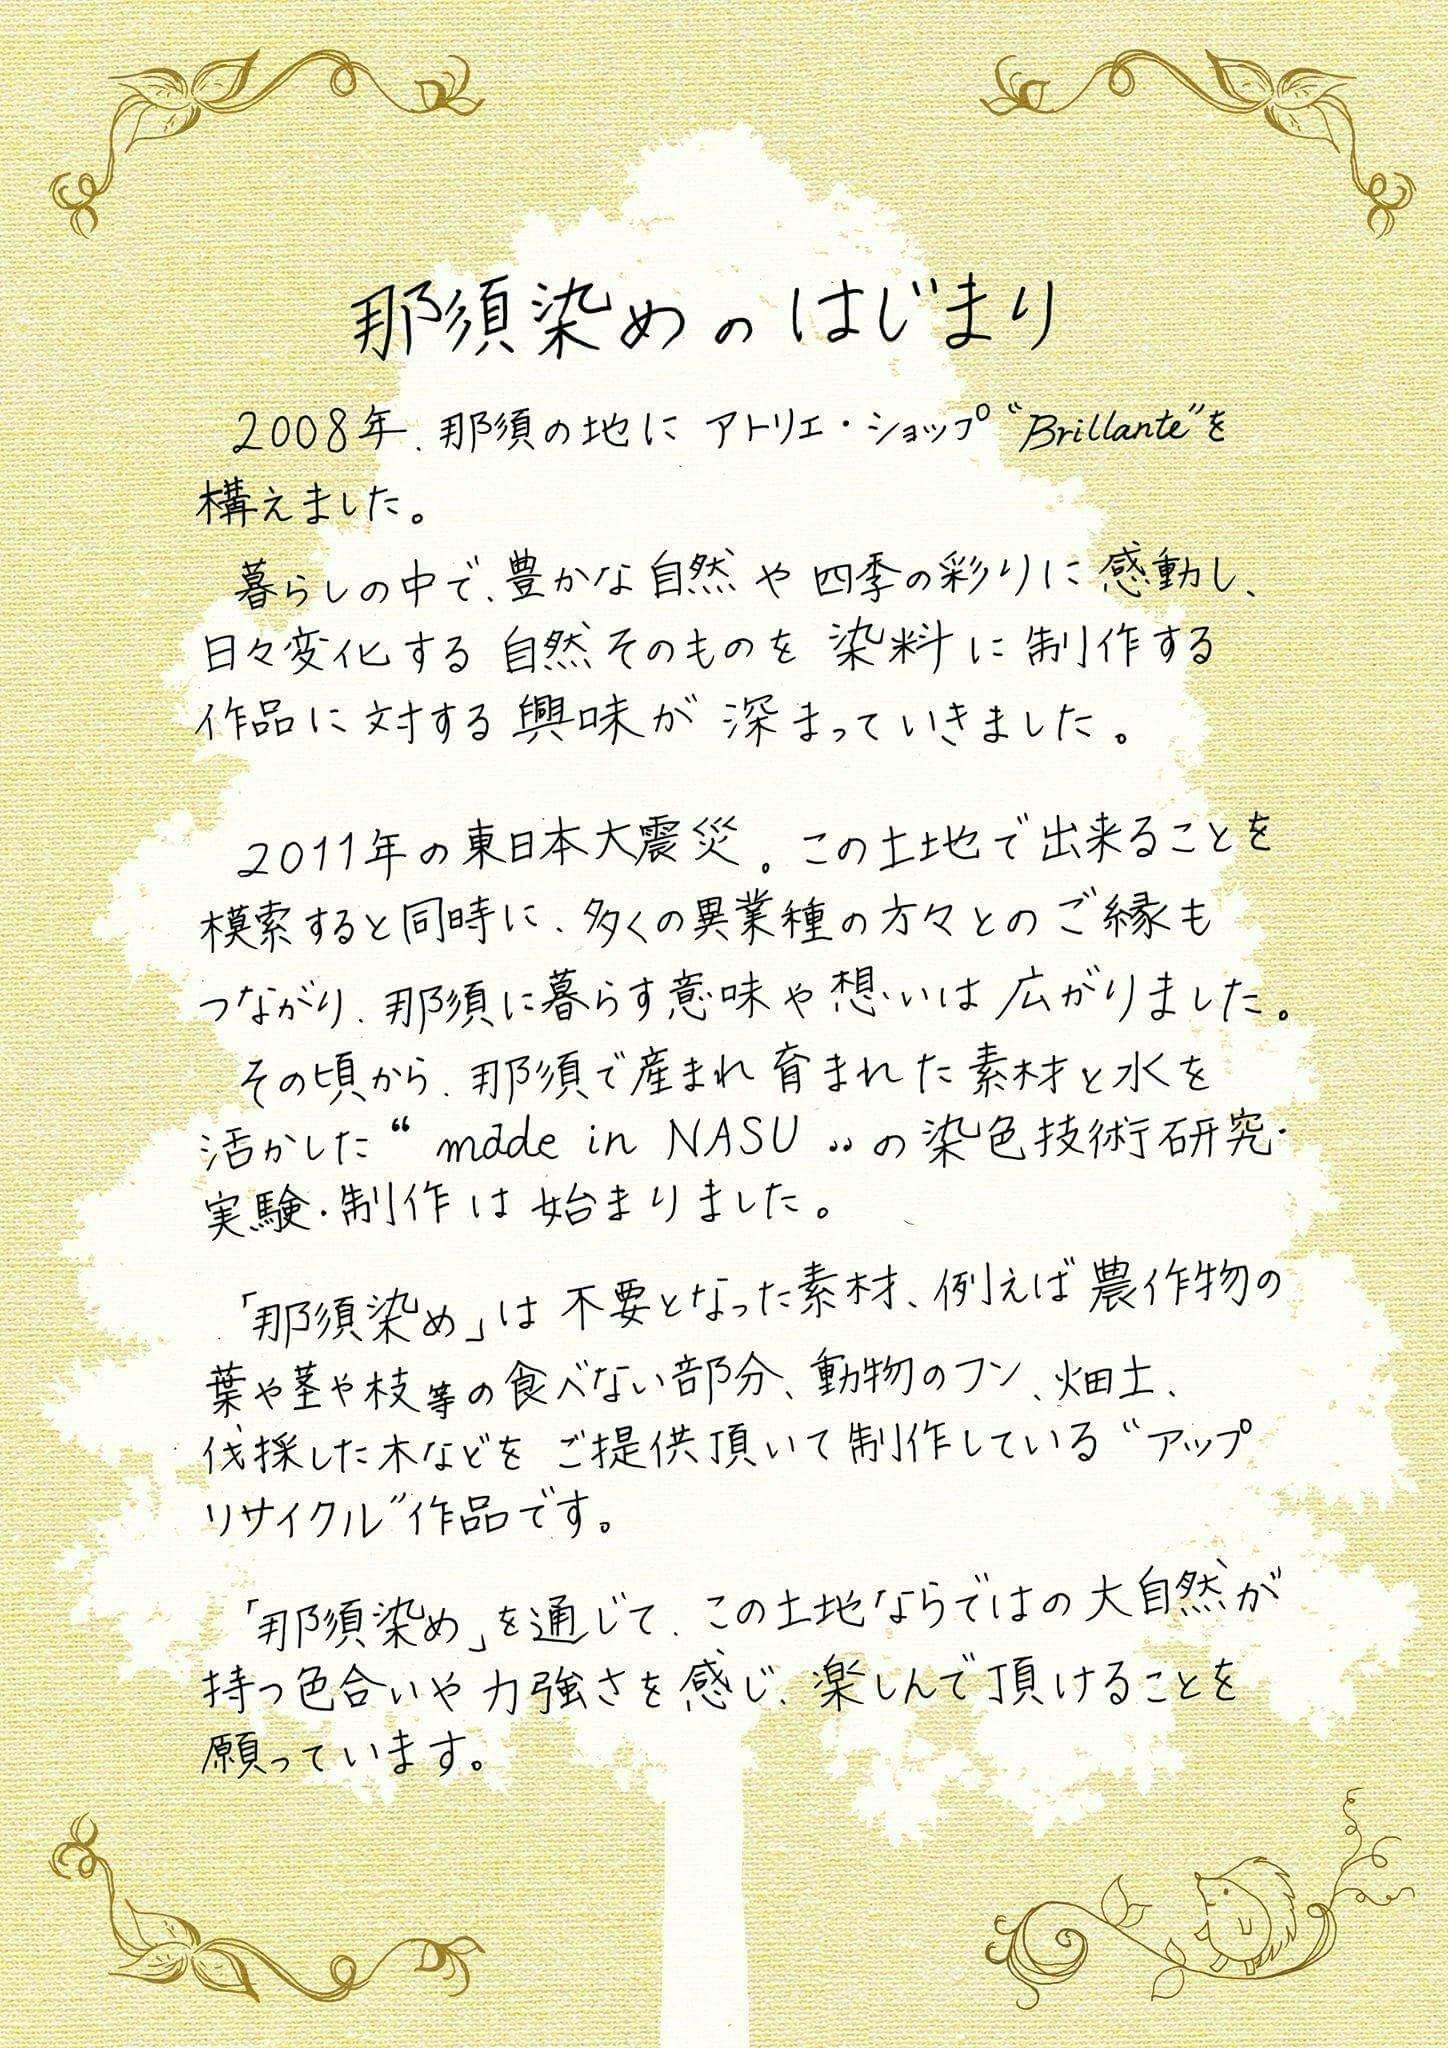 那須染めのはじまり
2008年、那須の地に アトリエ・ショップ“Brillante”を
構えました。
暮らしの中で、豊かな自然や四季の彩りに感動し、
日々変化する自然そのものを染料に制作する
作品に対する興味が深まっていきました。
2011年の東日本大震災。この土地で出来ることを
模索すると同時に、多くの異業種の方々とのご縁も
つながり、那須に暮らす意味や想いは広がりました。
その頃から、那須で産まれ育まれた素材と水を
活かした“made in NASU”の染色技術研究・
実験・制作は始まりました。
「那須染め」は不要となった素材、例えば農作物の
葉や茎や枝等の食べない部分、動物のフン、畑土、
伐採した木などをご提供頂いて制作している“アップ
リサイクル”作品です。
「那須染め」を通じて、この土地ならではの大自然が
持つ色合いや力強さを感じ、楽しんで頂けることを
願っています。